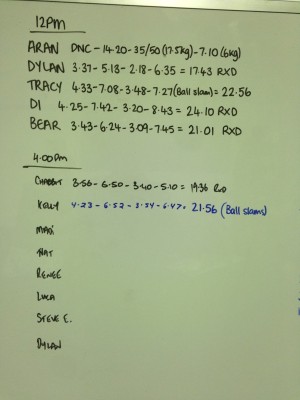 12PM
ARAN DNC - 14.20 - 35/50 (17.5kg) - 7.10 (6kg)
DYLAN 3.37 - 5.13 - 2.18 - 6.35 = 17.43 RXD
TRACY 4.33 - 7.08 - 3.48 - 7.27 (Ball slam) = 22.56
DI 4.25 - 7.42 - 3.20 - 8.43 = 24.10 RXD
BEAR 3.43 - 6.24 - 3.09 - 7.45 = 21.01 RXD
4.00pm
3.56 - 6.50 - 3.40 - 5.10 = 19.36 RXD
KELLY 4.23 - 6.52 - 3.54 - 6.47 = 21.56 (Ball slams)
MADI
NAT
RENEE
LUCA
STEVE E.
DYLAN